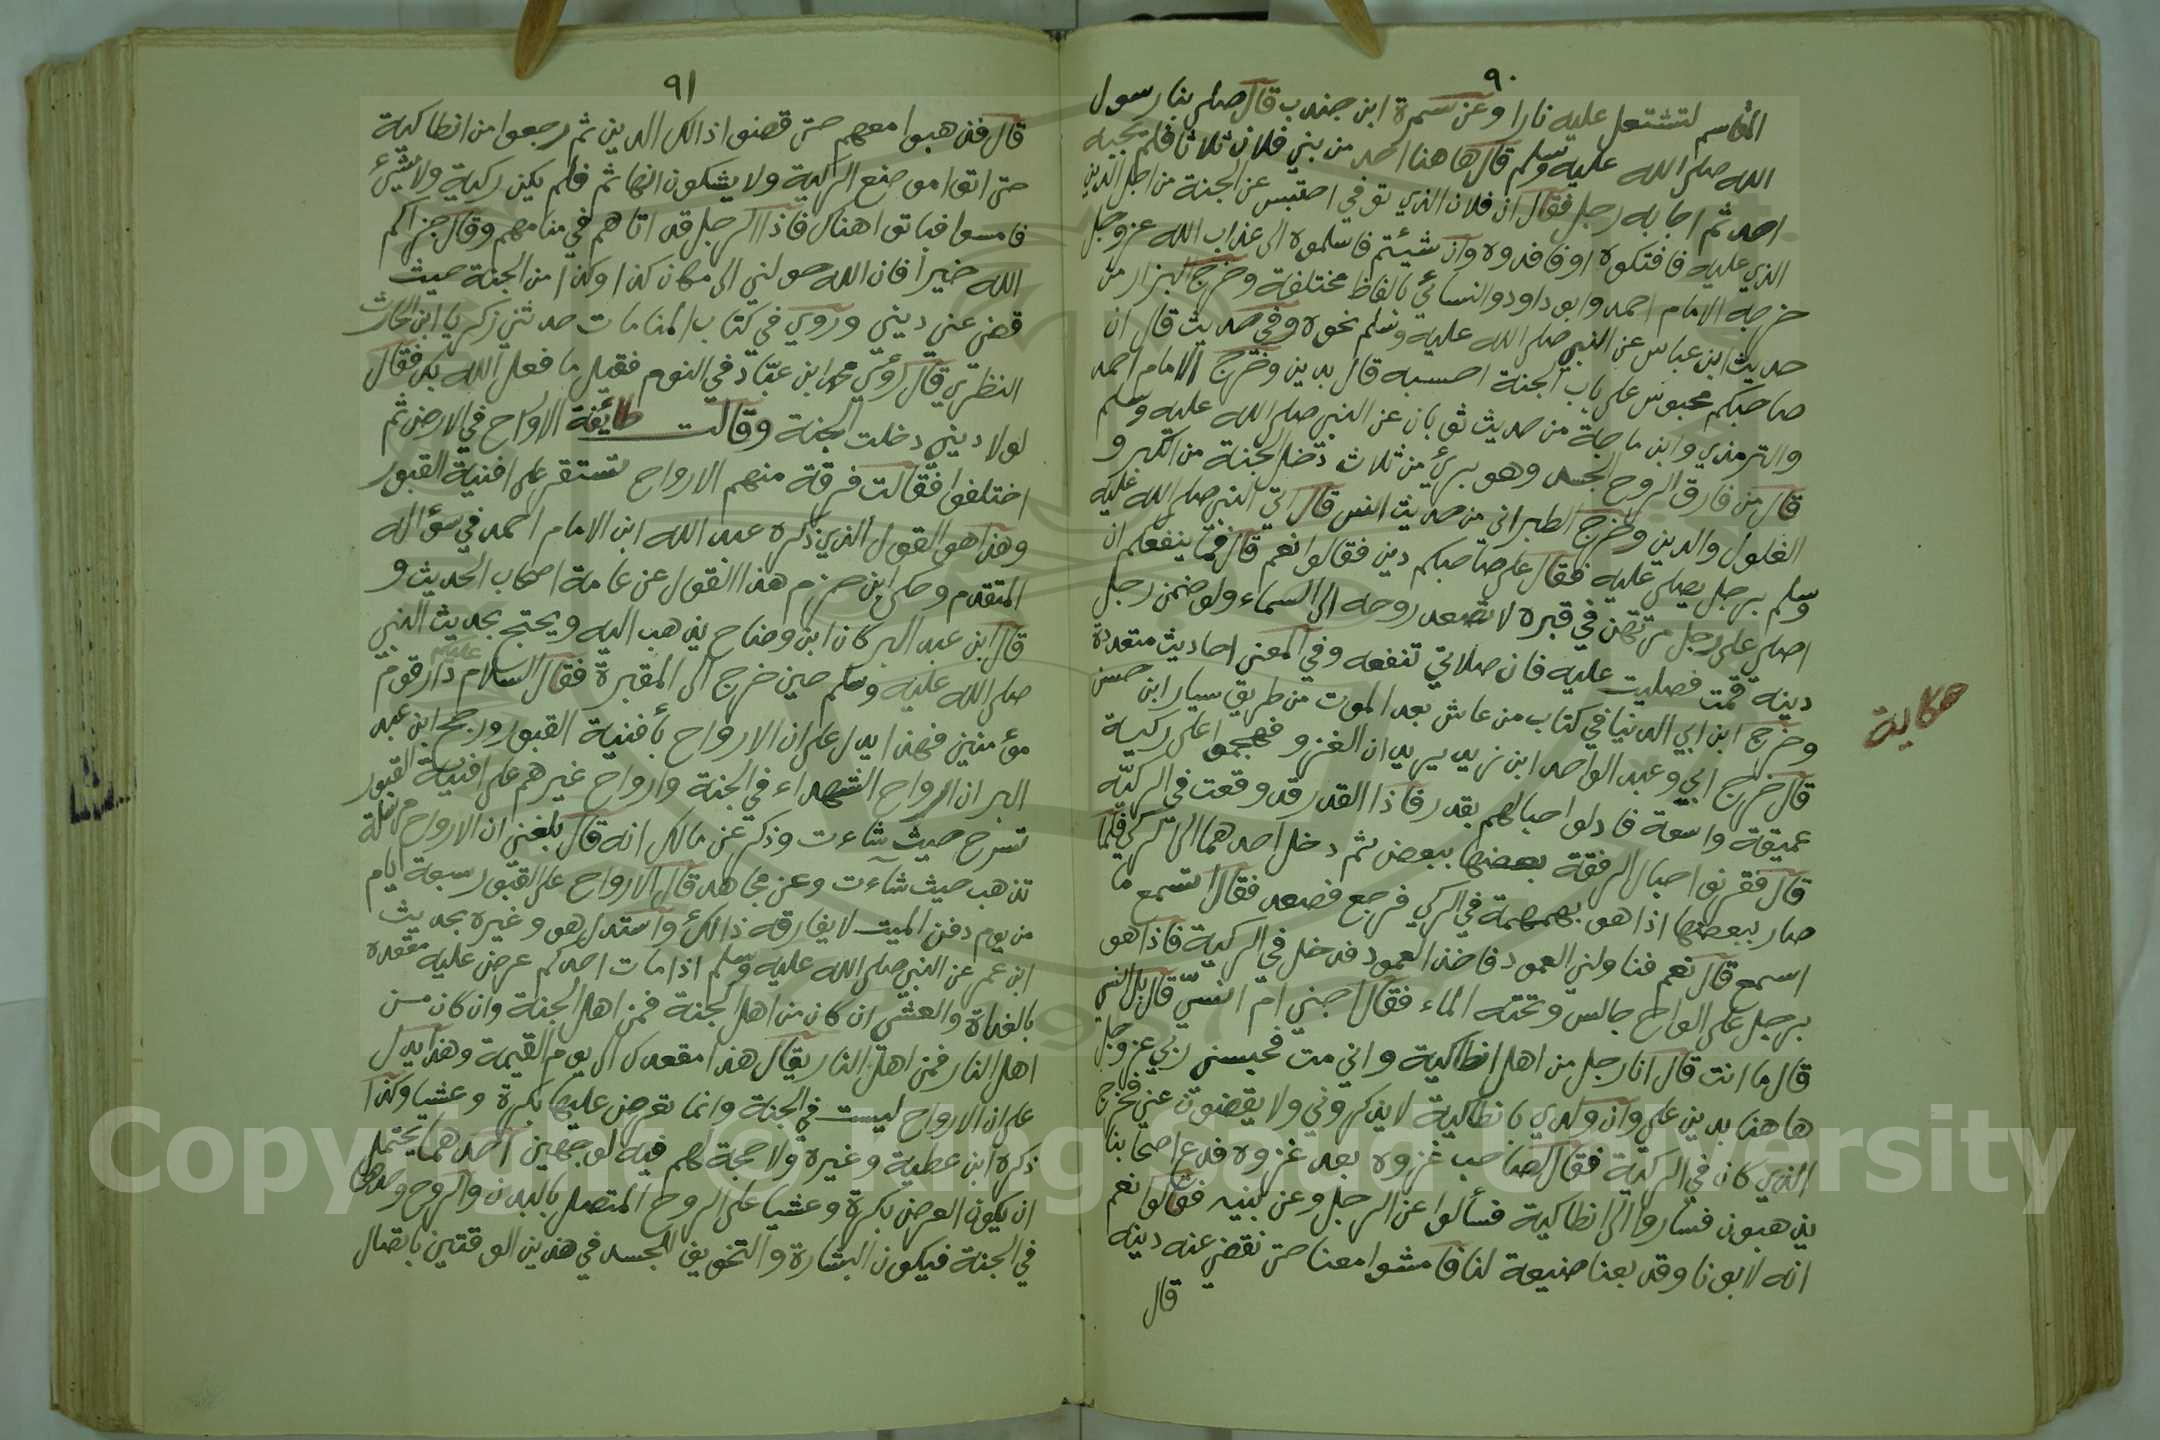 ٩٠
المقاسم لتشتعل عليه نارا وعن سمرة ابن جندب قال صلى بنا رسول
الله صلى الله عليه وسلم قال هاهنا احد من بني فلان ثلاثا فلم يجبه
احد ثم اجابه رجل فقال ان فلان الذي توفي احتبس عن الجنة من اجل الدين
الذي عليه فافتكوه او فافدوه وان شيئتم فاسلموه الى عذاب الله عز وجل
خرجه الامام احمد وابو داود والنسائي بالفاظ مختلفة وخرج البزار من
حديث ابن عباس عن النبي صلى الله عليه وسلم نحوه وفي حديث قال ان
صاحبكم محبوس على باب الجنة احسبه قال بدين وخرج الامام احمد
والترمذي وابن ماجة من حديث ثوبان عن النبي صلى الله عليه وسلم
قال من فارق الروح الجسد وهو بريء من ثلاث دخل الجنة من الكبر و
الغلول والدين وخرج الطبراني من حديث انس قال اتي النبي صلى الله عليه
وسلم برجل يصلى عليه فقال على صاحبكم دين فقالوا نعم قال فما ينفعكم ان
اصلي على رجل مرتهن في قبره لا تصعد روحه الى السماء ولو ضمن رجل
دينه قمت فصليت عليه فان صلاتي تنفعه وفي المعنى احاديث متعددة
وخرج ابن ابي الدنيا في كتاب من عاش بعد الموت من طريق سيار ابن حسن
حكاية
قال خرج ابي وعبد الواحد ابن زيد يريدان الغزو فهجموا على ركية
عميقة واسعة فادلوا حبالهم بقدر فاذا القدر قد وقعت في الركية
قال فقرنوا حبال الرفقة بعضها ببعض ثم دخل احدهما الى الركي فلما
صار ببعضها اذا هو بهمهمة في الركي فرجع فصعد فقال اتسمع ما
اسمع قال نعم فناولني العمود فاخذ العمود فدخل في الركية فاذا هو
برجل على الواح جالس وتحته الماء فقال اجني ام انسي قال بل انسي
قال ما انت قال انا رجل من اهل انطاكية واني مت فحبسني ربي عز وجل
هاهنا بدين علي وان ولدي بانطاكية لا يذكروني ولا يقضون عني فخرج
الذي كان في الركية فقال لصاحب غزوه بعد غزوه فدع اصحابنا
يذهبون فساروا الى انطاكية فسألوا عن الرجل وعن بنيه فقالوا نعم
انه لابونا وقد بعنا ضيعة لنا فامشوا معنا حتى نقضي عنه دينه
قال
٩١
قال فذهبوا معهم حتى قضوا ذالك الدين ثم رجعوا من انطاكية
حتى اتوا موضع الركية ولا يشكون انها ثم فلم يكن ركية ولا شيء
فامسوا فباتوا هناك فاذا الرجل قد اتاهم في منامهم وقال جزاكم
الله خيرا فان الله حولني الى مكان كذا وكذا من الجنة حيث
قضي عني ديني وروي في كتاب المنامات حدثني زكريا ابن الحارث
النظري قال رؤي محمد ابن عباد في النوم فقيل ما فعل الله بك فقال
لولا ديني دخلت الجنة وقالت طائفة الارواح في الارض ثم
اختلفوا فقالت فرقة منهم الارواح تستقر على افنية القبور
وهذا هو القول الذي ذكره عبد الله ابن الامام احمد في سؤاله
المتقدم وحكى ابن حزم هذا القول عن عامة اصحاب الحديث و
قال ابن عبد البر كان ابن وضاح يذهب اليه ويحتج بحديث النبي
صلى الله عليه وسلم حين خرج الى المقبرة فقال السلام عليكم دار قوم
مؤمنين فهذا يدل على ان الارواح بأفنية القبور ورجح ابن عبد
البر ان ارواح الشهداء في الجنة وارواح غيرهم على افنية القبور
تسرح حيث شاءت وذكر عن مالك انه قال بلغني ان الارواح مرسلة
تذهب حيث شآءت وعن مجاهد قال الارواح على القبور سبعة ايام
من يوم دفن الميت لا يفارقه ذالك واستدل هو وغيره بحديث
ابن عمر عن النبي صلى الله عليه وسلم اذا مات احدكم عرض عليه مقعده
بالغداة والعشي ان كان من اهل الجنة فمن اهل الجنة وان كان من
اهل النار فمن اهل النار يقال هذا مقعدك الى يوم القيمة وهذا يدل
على ان الارواح ليست في الجنة وانما تعرض عليها بكرة وعشيا وكذا
ذكره ابن عطية وغيره ولا حجة لهم فيه لوجهين احدهما يحتمل
ان يكون العرض بكرة وعشيا على الروح المتصل بالبدن والروح وحدها
في الجنة فيكون البشارة والتخويف للجسد في هذين الوقتين باتصال
Copyright © King Saud University